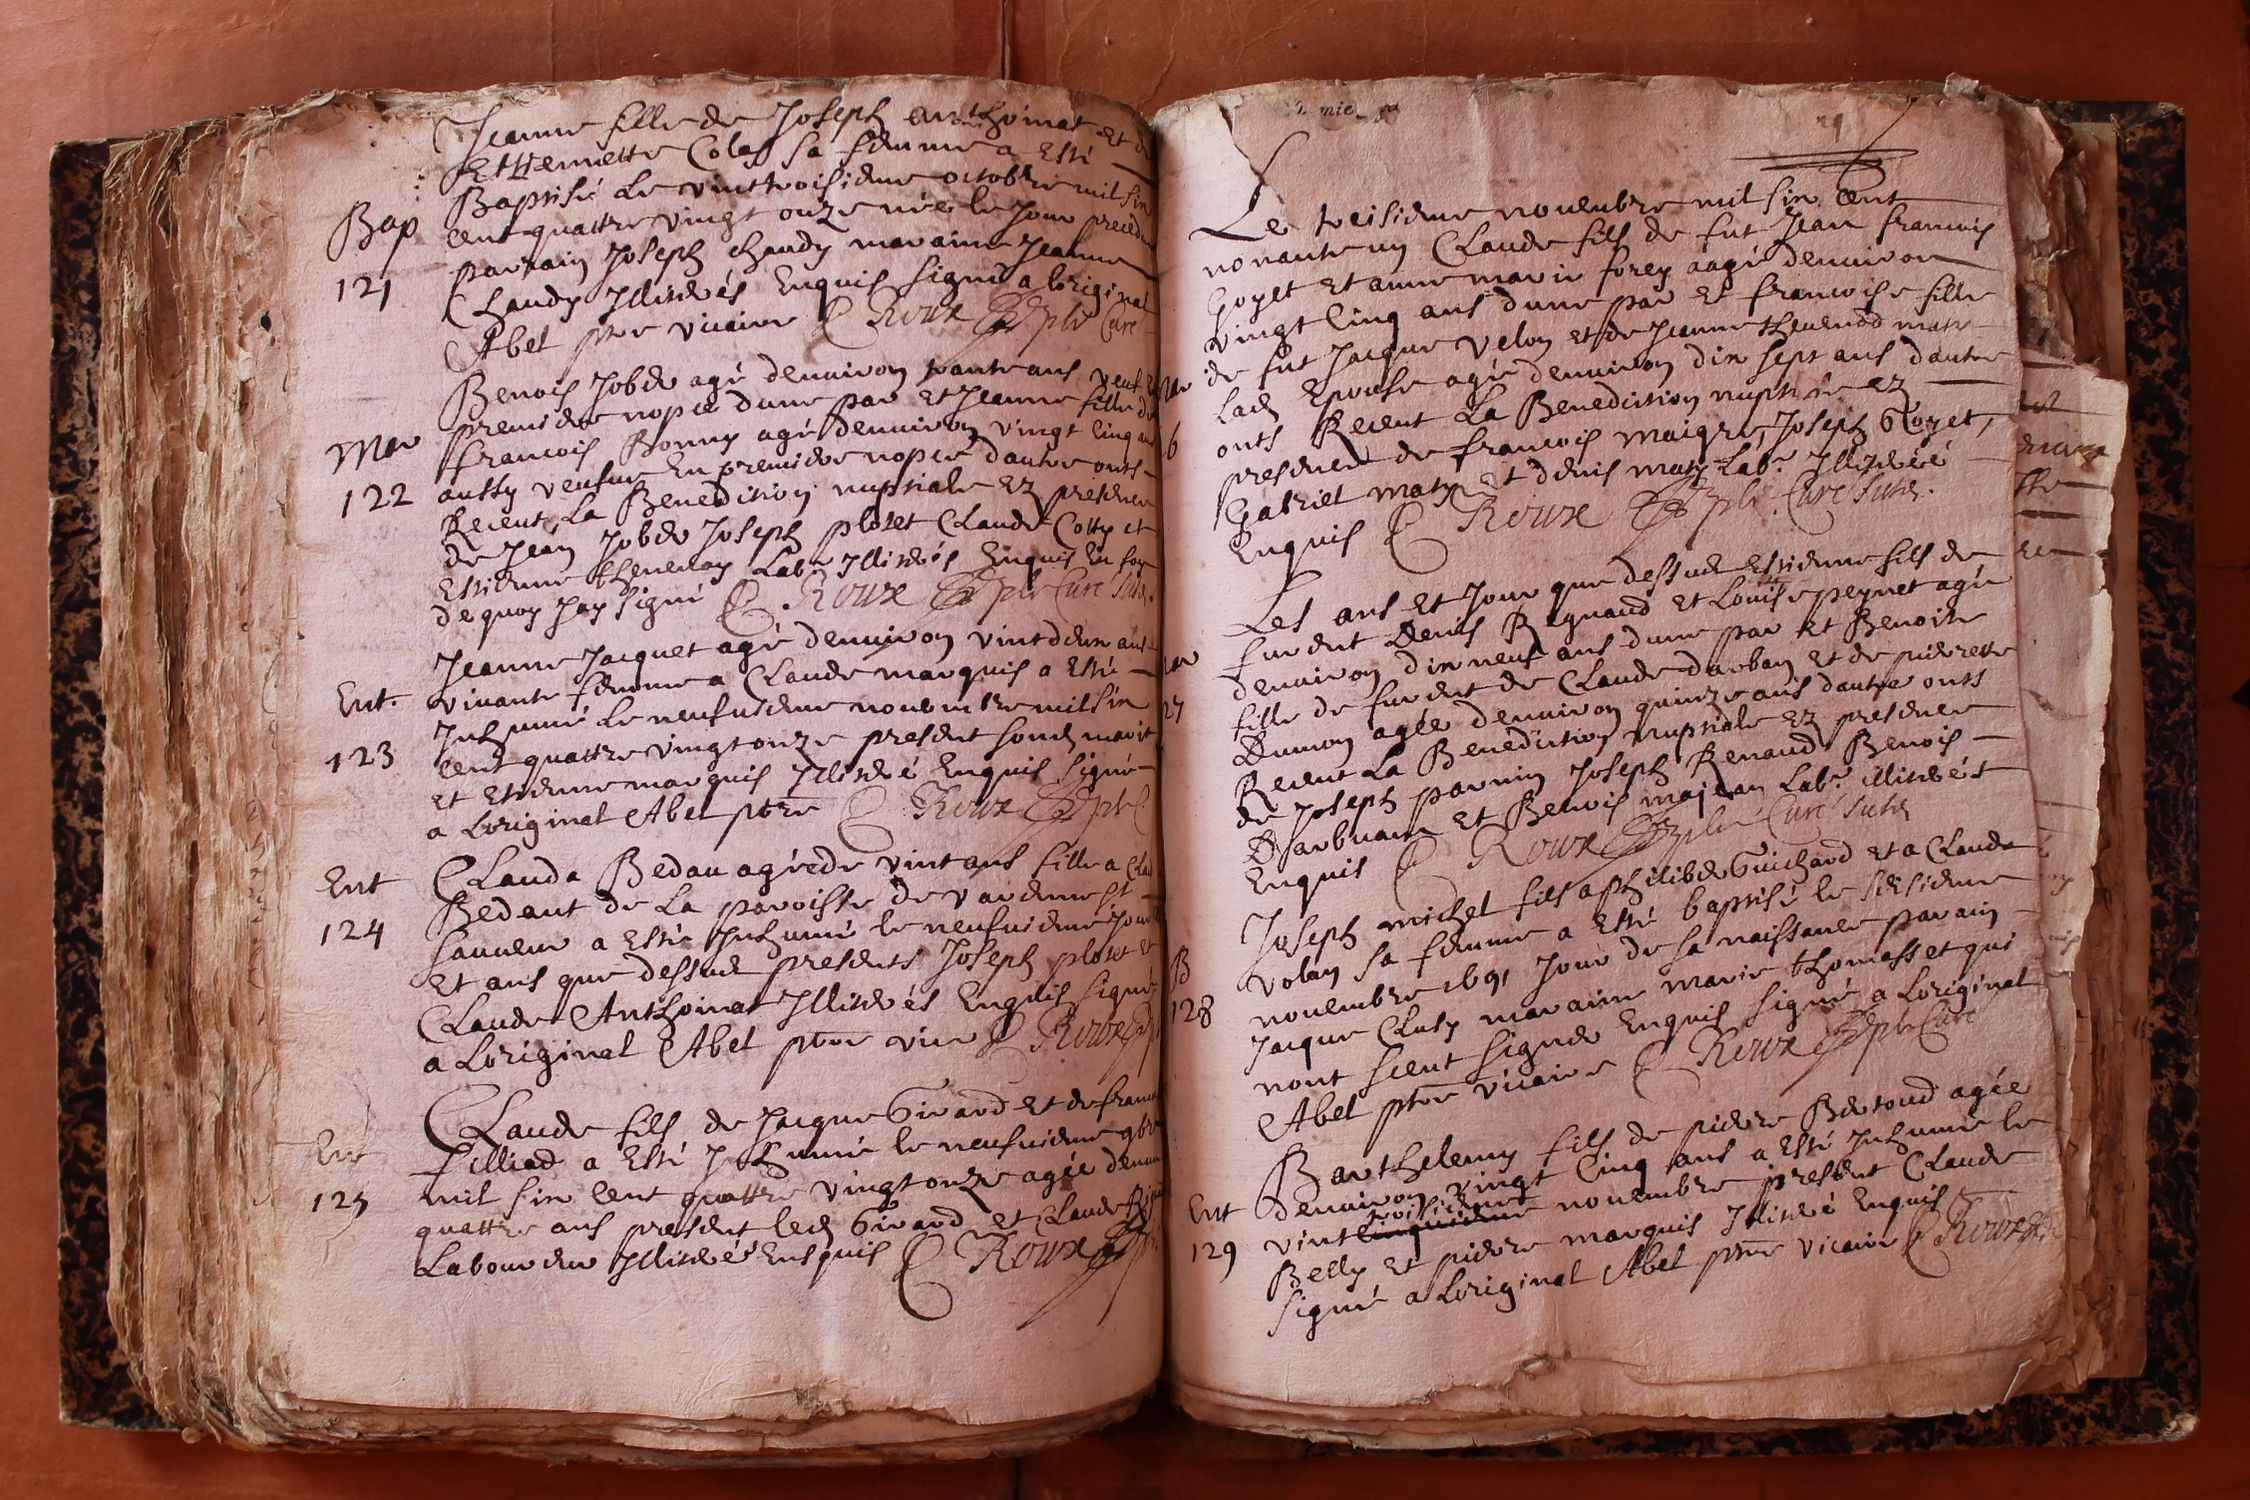 Jeanne fille de Joseph anthoinat et de
Ettiennette Colas sa femme a esté
Bap Baptisé le vint troisieme octobre mil six
cent quattre vingt onze née le jour precedent
121 parrain Joseph chandy maraine Jeanne
Chandy Illitérés Enquis signé a loriginal
Abel ptre vicaire C Roux ptr Curé
Benois Jober agé denuiron trante ans veuf en
Mar premiere nopce dune par et Jeanne fille de
francois Bonny agé denuiron vingt cinq ans
122 aussy veufue En premiere nopce dautre onts
Receut La Benediction nuptiale Ez presence
de Jean Jober Joseph plotet Claude Cotty et
Estienne thevenay Labr Illitérés Enquis En foy
de quoy Jay signé C. Roux ptr Curé susd.
Jeanne Jacquet agé denuiron vint deux ans
Ent. vivante femme a Claude marquis a Esté
Inhumé le neufuieme novembre mil six
123 cent quattre vingt onze present sond marit
et estienne marquis Illitéré Enquis signé
a Loriginal Abel ptre C Roux ptr C
Ent Clauda Bedau agée de vint ans fille a Cla
Bedaut de La paroisse de varenne st
124 sauueur a Esté Inhumé le neufuieme jour
Et ans que dessus presents Joseph plotet et
Claude Anthoinat Illitérés Enquis signé
a Loriginal Abel ptre vire C Roux
Claude fils de Jacque Girard et de franc
Ent filliad a Esté Inhumé le neufuieme 9bre
mil six cent quattre vingt onze agée denui
125 quattre ans present led Girard et Claude
Laboureur Illitéré Enquis C Roux
Le treisieme nouembre mil six Cent
nonante un Claude fils de fut Jean francois
Goyet et anne marie forey aagé denuiron
vingt Cinq ans dune par et francoise fille
de fut Jacque velon et de Jeanne thevenod
Lad Epouse agée denuiron dix sept ans dautre
onts Receut La Benediction nuptiale ez
6 presence de francois maigre, Joseph Goyet,
Gabriel maty et denis maty Labr. Illitéré
Enquis C Roux ptr. Curé susd.
Les ans et Jour que dessus Estienne fils de
furent Denis Rignaud et Louise peynet agé
denuiron dix neuf ans dune par et Benoite
fille de furent de Claude darban et de pierrette
27 Dumon agée denuiron quinze ans dautre onts
Receut La Benediction nuptiale ez presence
de Joseph parnin Joseph Renaud Benois
Darbuam et Benois majean Labr. illitérés
Enquis C Roux ptr Curé susd
Joseph michel fils a philiber Guichard et a Claude
volan sa femme a Esté baptisé le seisieme
B nouembre 1691 Jour de sa naissance parain
128 Jacque Clusy maraine marie thomasset qui
nont sceut signer Enquis signé a Loriginal
Abel ptre vicaire C Roux ptr Curé
Barthelemy fils de pierre Bertoud agée
denuiron vingt Cinq ans a Esté Inhumé le
troisieme
Ent vint cinquieme nouembre present Claude
129 Belly et pierre marquis Illitéré Enquis
signé a Loriginal Abel ptre vicaire C Roux